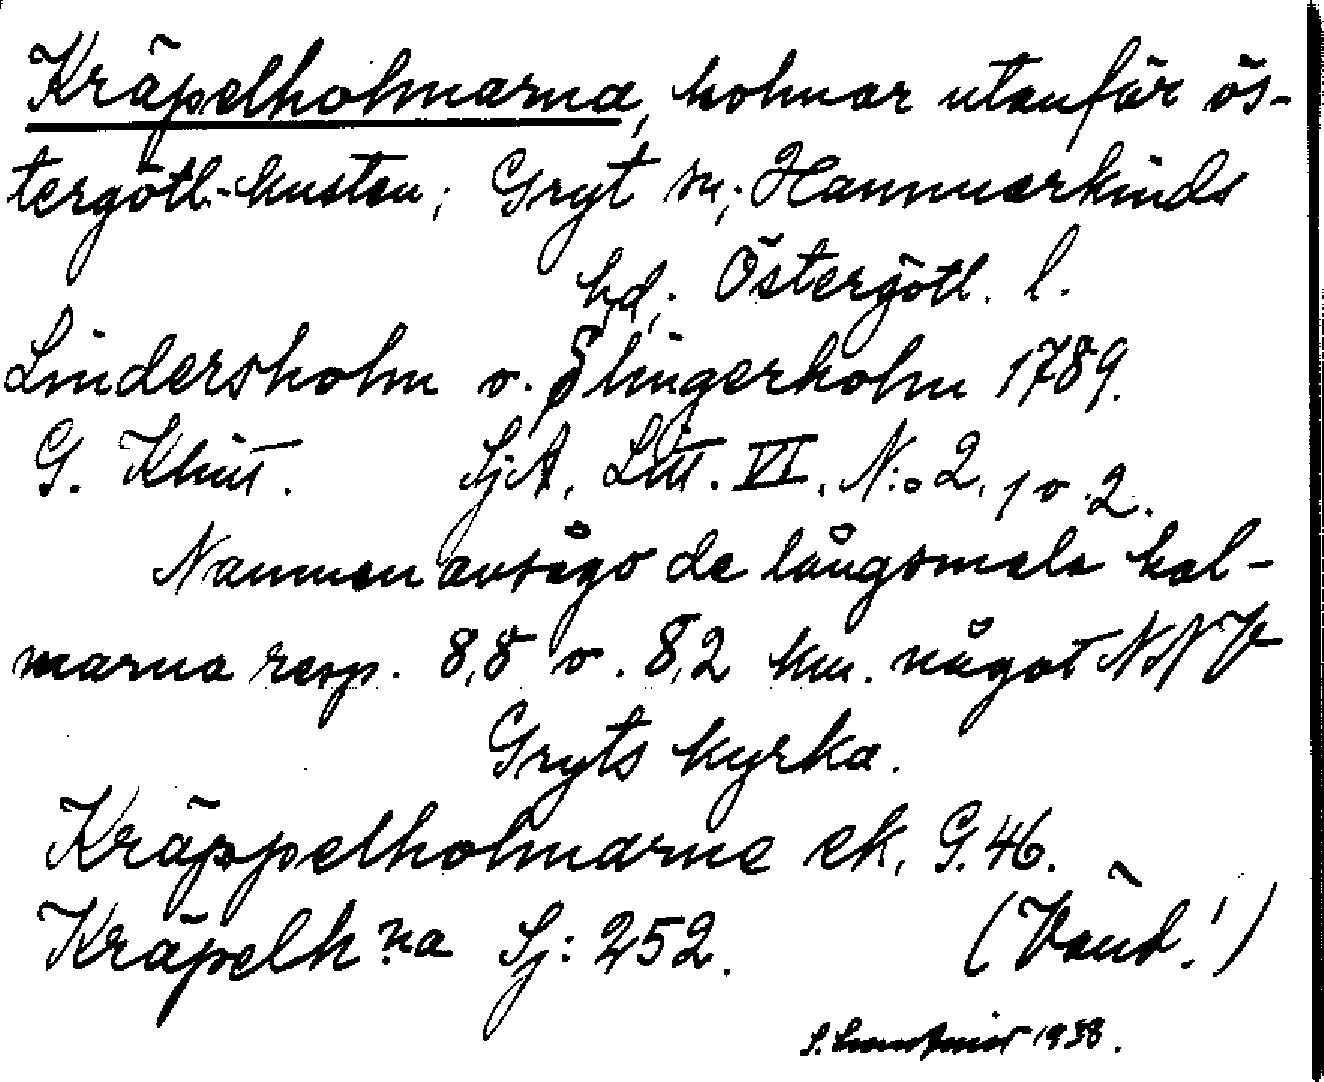 Kräpelholmarna, holmar utanför ös-
tergötl.-kusten; Gryt sn; Hammarkinds
hd; Östergötl. l.
Lindersholm o. Slingerholm 1789.
G. Klint. SjA, Litt. VI. N:o 2, 1 o. 2.
Namnen avsågo de långsmala hol-
marna resp. 8,8 o. 8,2 km. något NNV
Gryts kyrka.
Kräppelholmarne ek. G. 46.
Kräpelh:na Sj: 252. (Vänd!)
S. 1938.